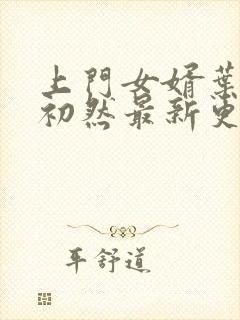 上門女婿葉
初然最新更
平舒道